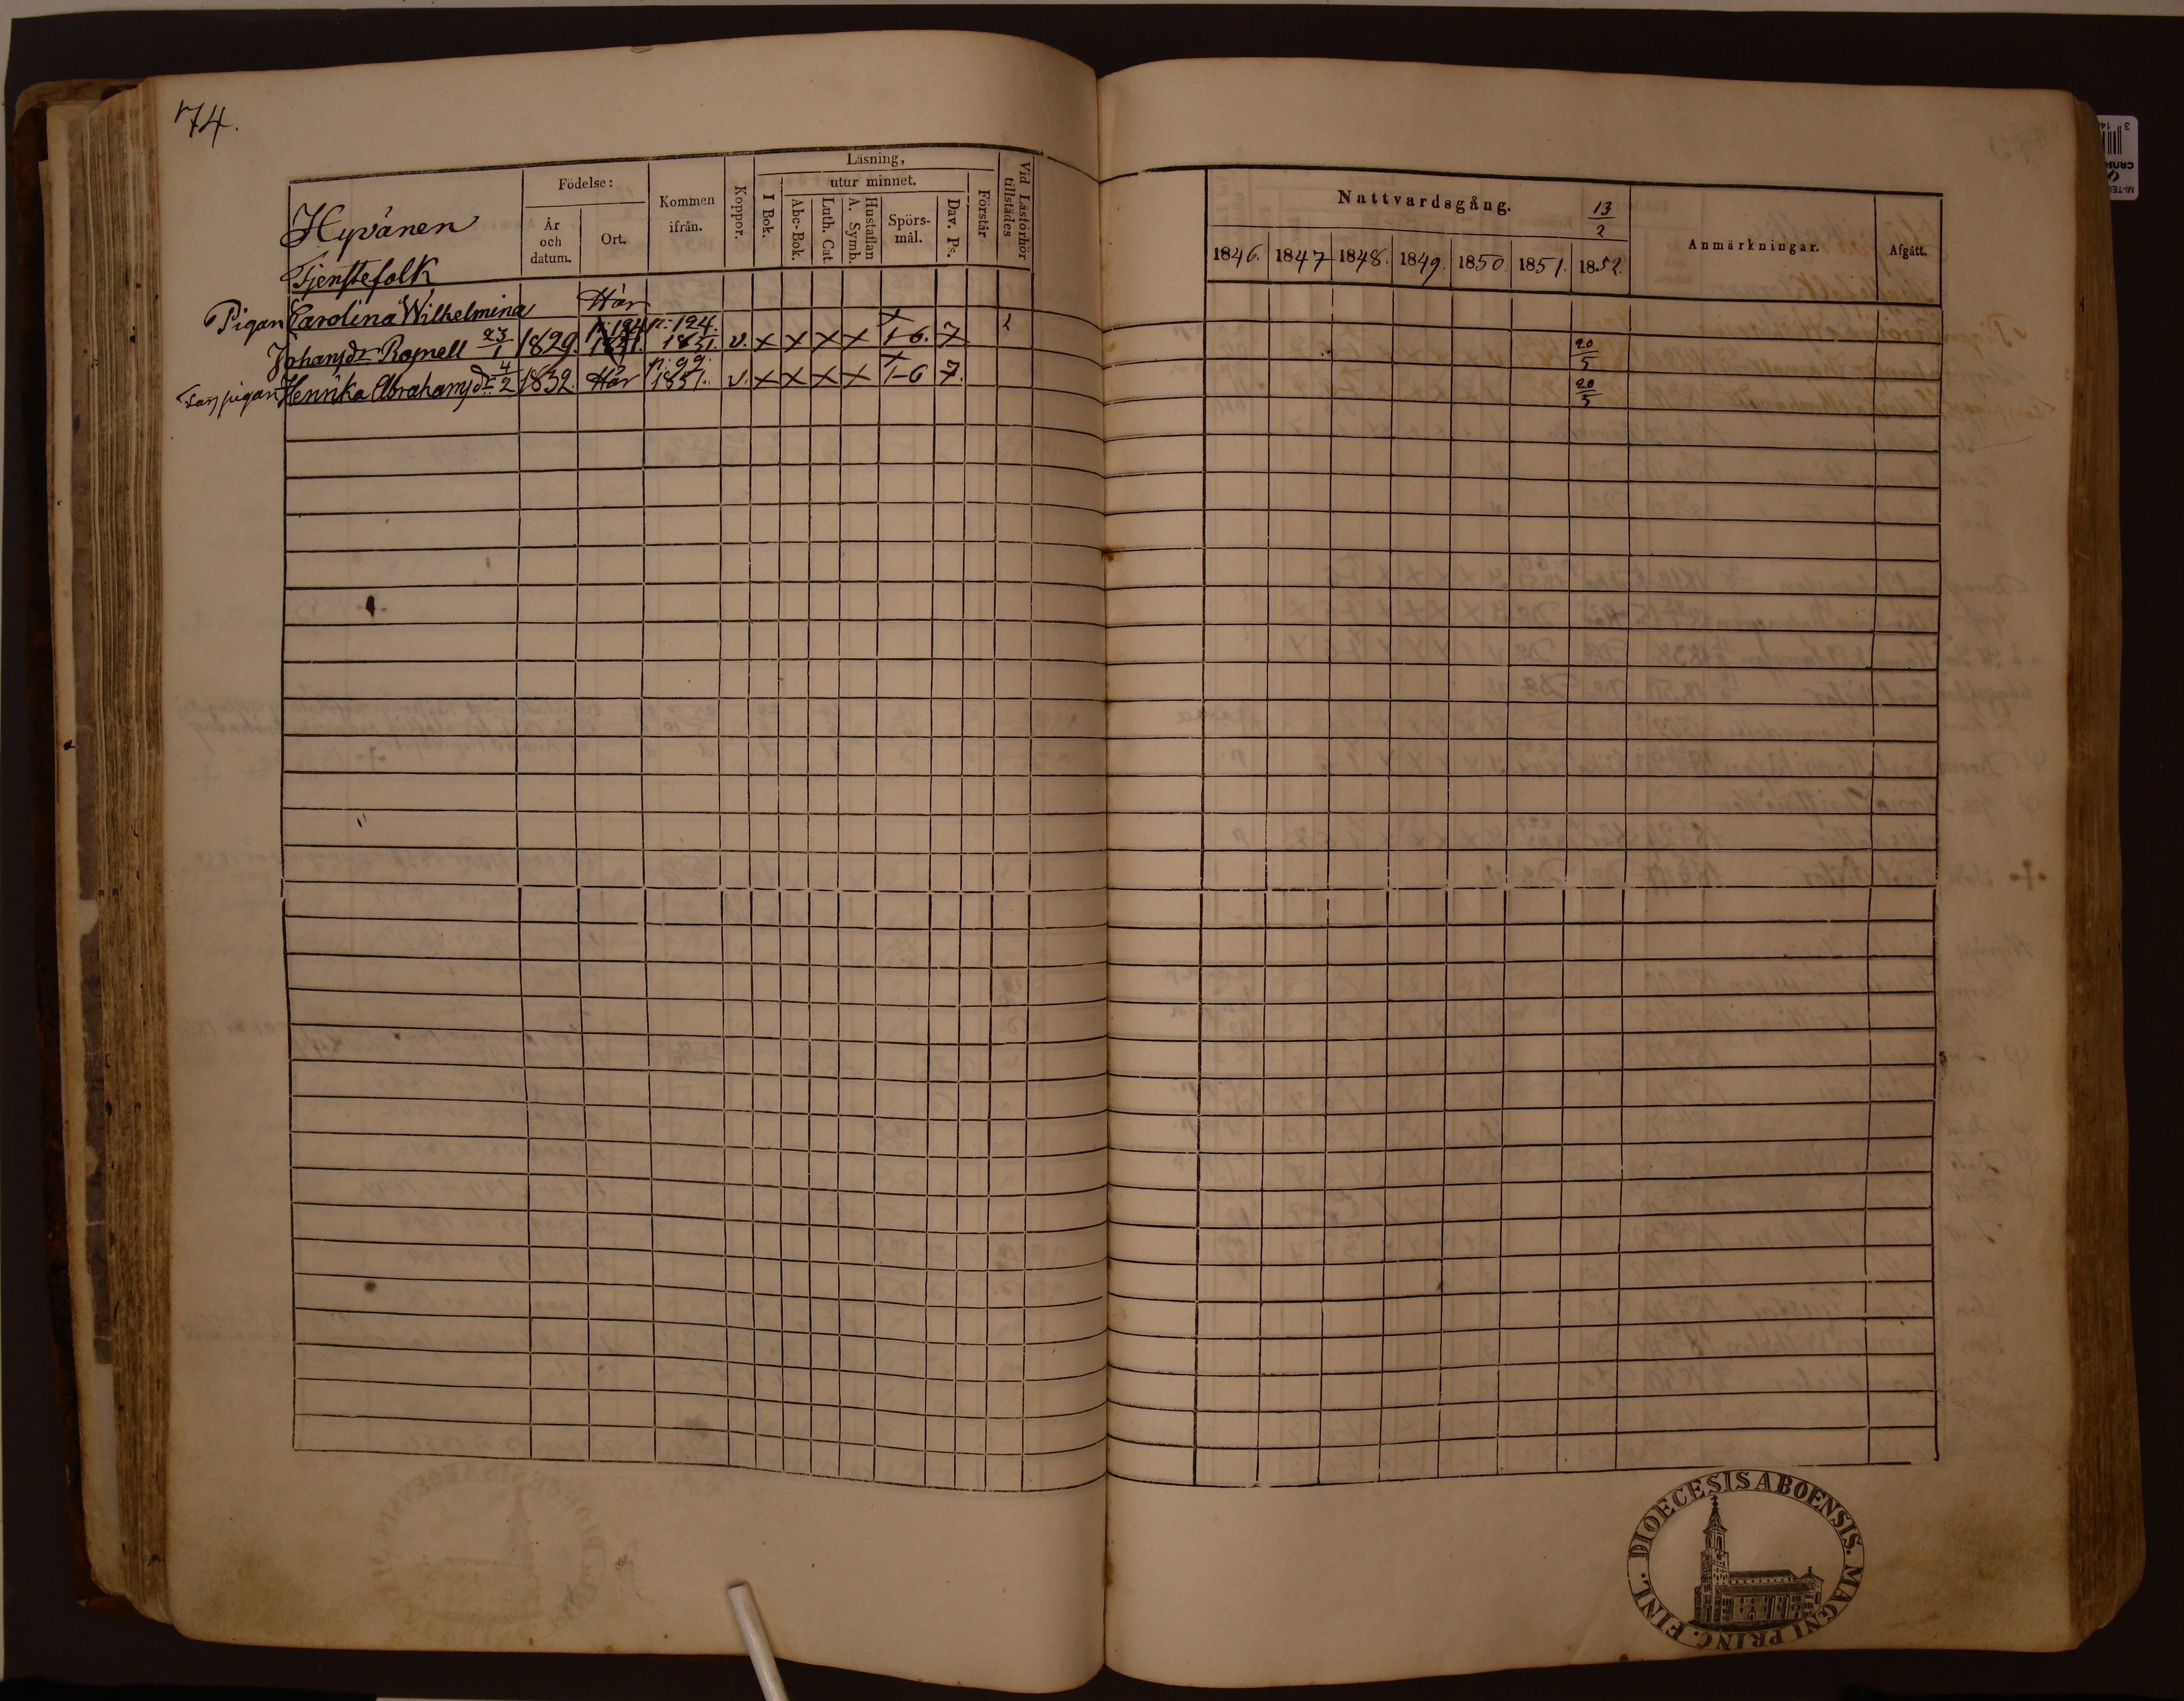 74.
Hyvänen
Tjenstefolk
Födelse:
År och datum.
Ort.
Kommen ifrån.
Koppor.
Läsning,
I Bok.
utur minnet.
Abc-Bok.
Luth. Cat.
Hustaflan A. Symb.
Spörs-mål.
Dav. Ps.
Förstår
Vid Läsförhör tillstädes
Nattvardsgång. 13/2
1846. 1847 1848. 1849. 1850. 1851. 1852.
Anmärkningar.
Afgått.
Pigan Carolina Wilhelmina Här
p. 124 p. 124.
Johansdr Romell 23/1 1829. 1851. 1851. v. x x x x x 1-6. 7 20/5
p. 99.
pigan Henrika Abrahamsdr 4/2 1832. Här 1851. v. x x x x x 1-6 7. 20/5
DIOECESIS ABOENSIS. MAGNI PRINC. FINL.